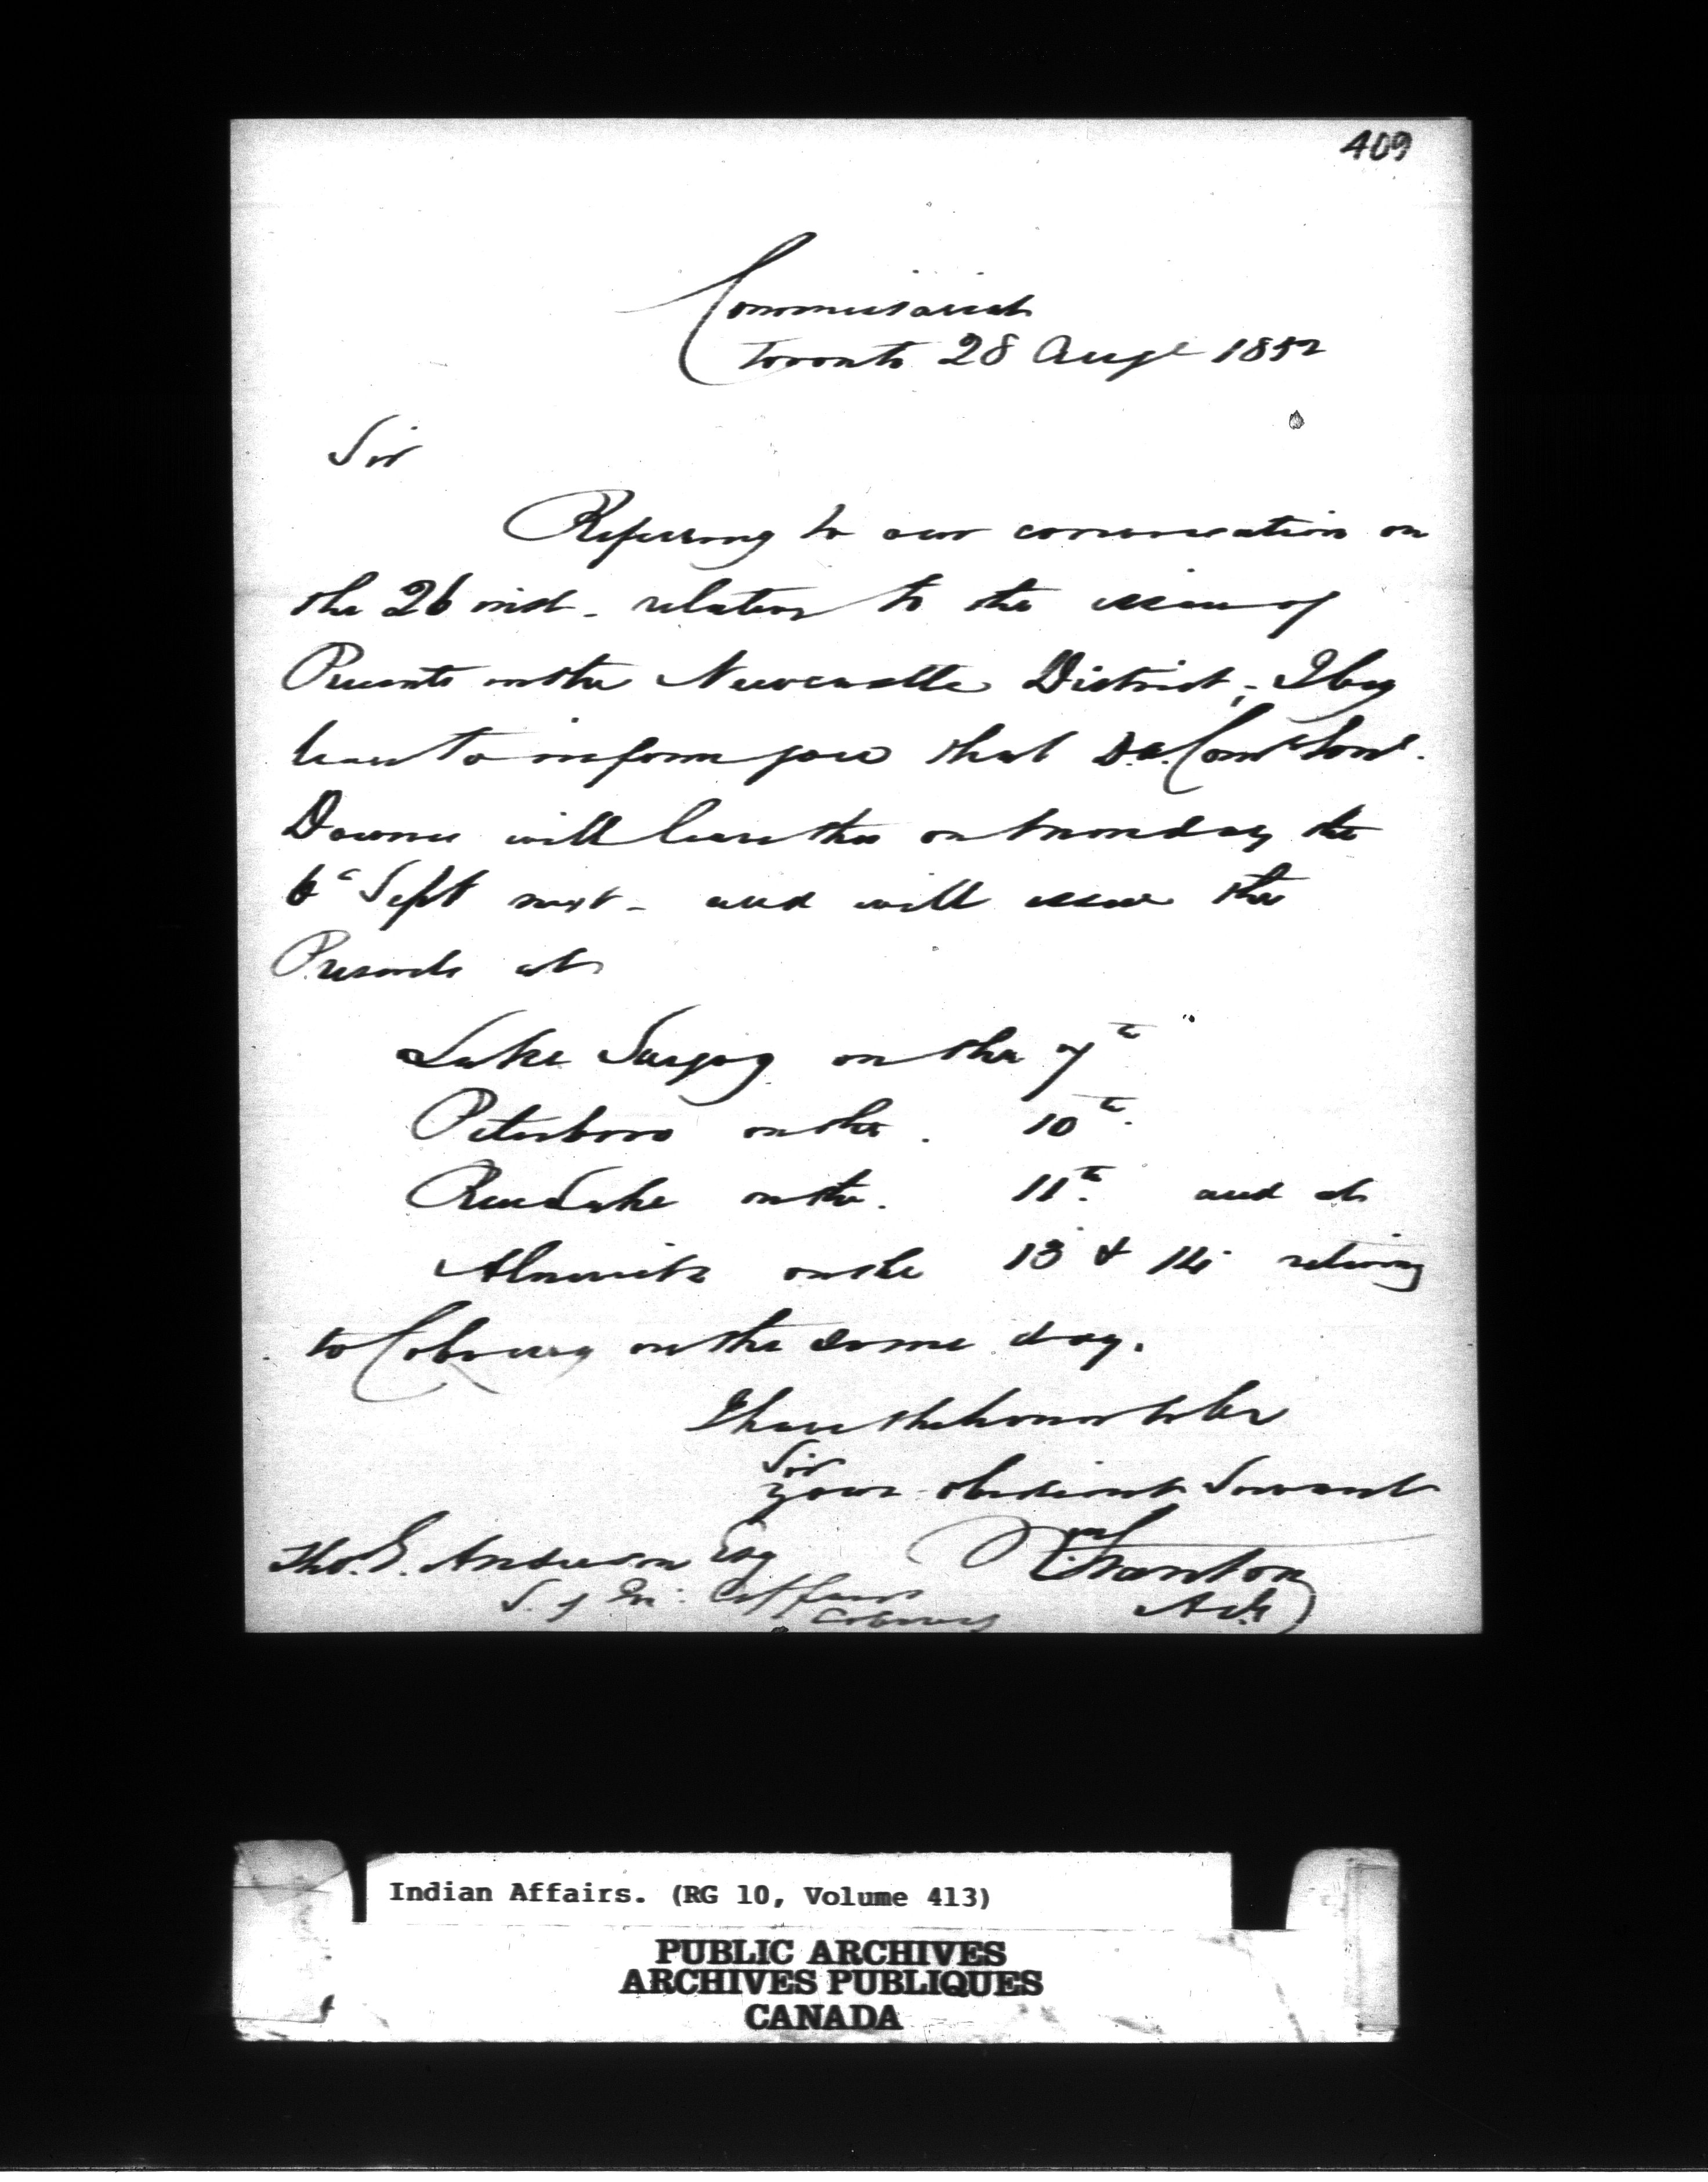 409
Commissariat
Toronto 28 Augt 1852
Sir
Referring to our conversation on
the 26 inst. relative to the issue of
Presents in the Newcastle District, I beg
leave to inform you that D.A. Com Genl.
Downes will leave this on Monday the
6th Sept next - and will issue the
Presents at
Lake Scugog on the 7th
Peterboro on the 10th
Rice Lake on the 11th and at
Alnwick on the 13 & 14 retiring
to Cobourg on the same day.
I have the honor to be
Sir
your obedient Servant
Tho. G. Anderson Esq
W. Stanton
S. of In: Affairs
Cobourg
Indian Affairs. (RG 10, Volume 413)
PUBLIC ARCHIVES
ARCHIVES PUBLIQUES
CANADA